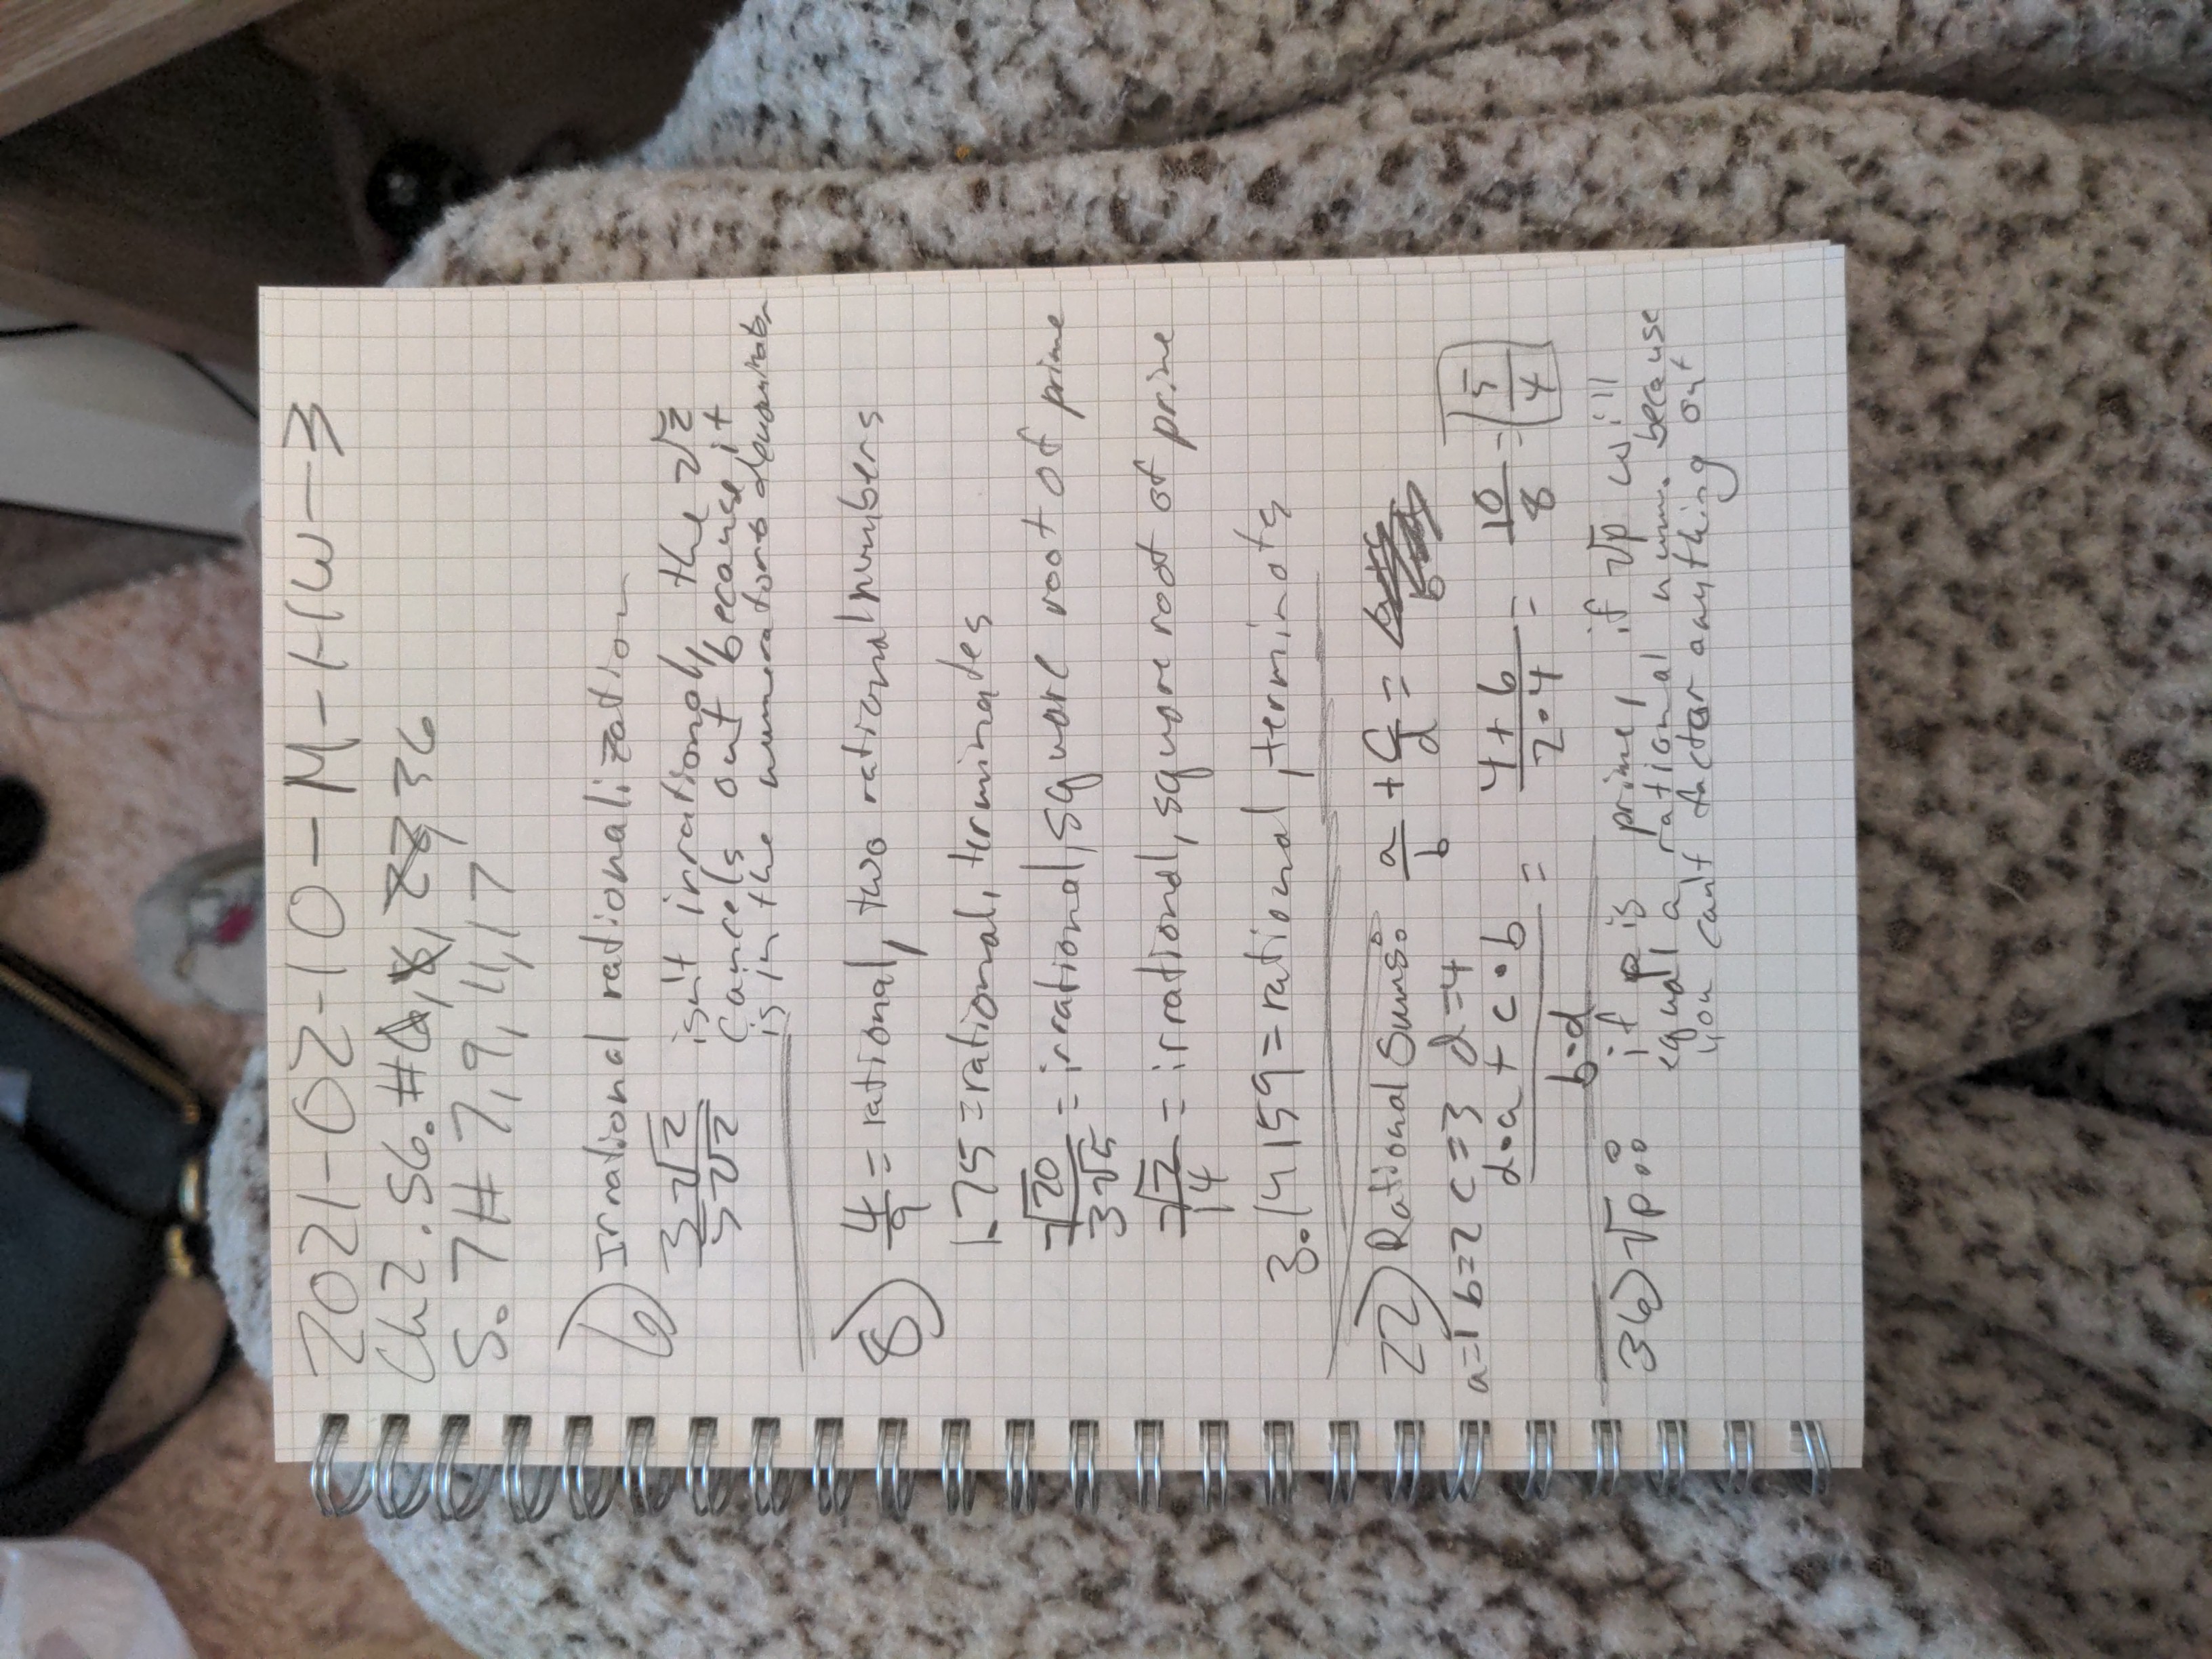 2021-02-10-M-HW-3
Ch2.S6.#6,8,22,36
S.7# 7,9,11,17
6) Irrational rationalization
3√2/5√2 isn't irrational, the √2
cancels out because it
is in the numerator & denominator
8) 4/9 = rational, two rational numbers
1.75 = rational, terminates
√20/3√5 = irrational, square root of prime
√2/14 = irrational, square root of prime
3.14159 = rational, terminats
22) Rational Sums: a/b + c/d =
a=1 b=2 c=3 d=4
d·a + c·b / b·d = 4+6 / 2·4 = 10/8 = 5/4
36) √p: if p is prime, if √p will
equal a rational num. because
you can't factor anything out